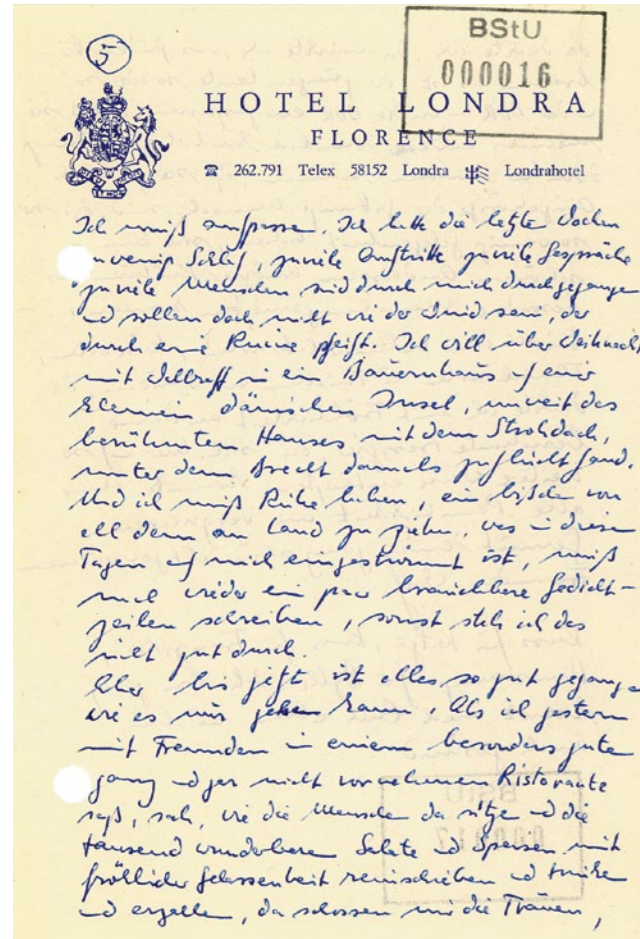 5
BStU
000016
HOTEL LONDRA
FLORENCE
☎ 262.791 Telex 58152 Londra Londrahotel
Ich muß aufpassen. Ich hatte die letzte Wochen
zuwenig Schlaf, zuviele Auftritte zuviele Gespräche
zuviele Menschen sind durch mich durchgegangen
und sollen doch nicht wie der Wind sein, der
durch eine Ruine pfeift. Ich will über Weihnacht
mit in ein Bauernhaus auf einer
kleinen dänischen Insel, unweit des
berühmten Hauses mit dem Strohdach,
unter dem Brecht damals Zuflucht fand.
Und ich muß Ruhe haben, ein bißchen von
all dem an Land zu ziehn, was in diesen
Tagen auf mich eingestürmt ist, muß
mal wieder ein paar brauchbare Gedicht-
zeilen schreiben, sonst steh ich das
nicht gut durch.
Aber bis jetzt ist alles so gut gegangen
wie es nur gehen kann. Als ich gestern
mit Freunden in einem besonders guten
ganz und gar nicht vornehmen Ristorante
saß, sah, wie die Menschen da sitzen und die
tausend wunderbaren Salate und Speisen mit
fröhlicher Gelassenheit reinschieben und trinken
und erzählen, da schossen mir die Tränen,